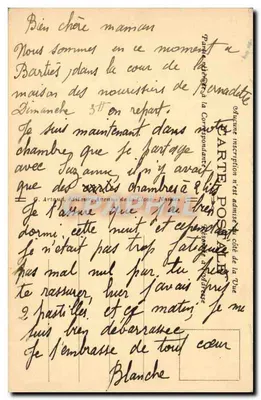 Bien chère maman
Nous sommes en ce moment à
Bartrès, dans la cour de la
maison des nourrissiers de Bernadette
Dimanche soir on repart.
Je suis maintenant dans une
chambre que je partage
avec Suzanne, il n'y avait
que des chambres à 2 lits
Je t'assure que j'ai très
dormi cette nuit et cependant
je n'étais pas trop fatiguée
pas mal non plus, tu peux
te rassurer, hier j'avais pris
2 pastilles et ce matin je me
suis bien débarrassée
Je t'embrasse de tout cœur
Blanche
CARTE POSTALE
Aucune inscription n'est admise du côté de la Vue
Partie réservée à la Correspondance